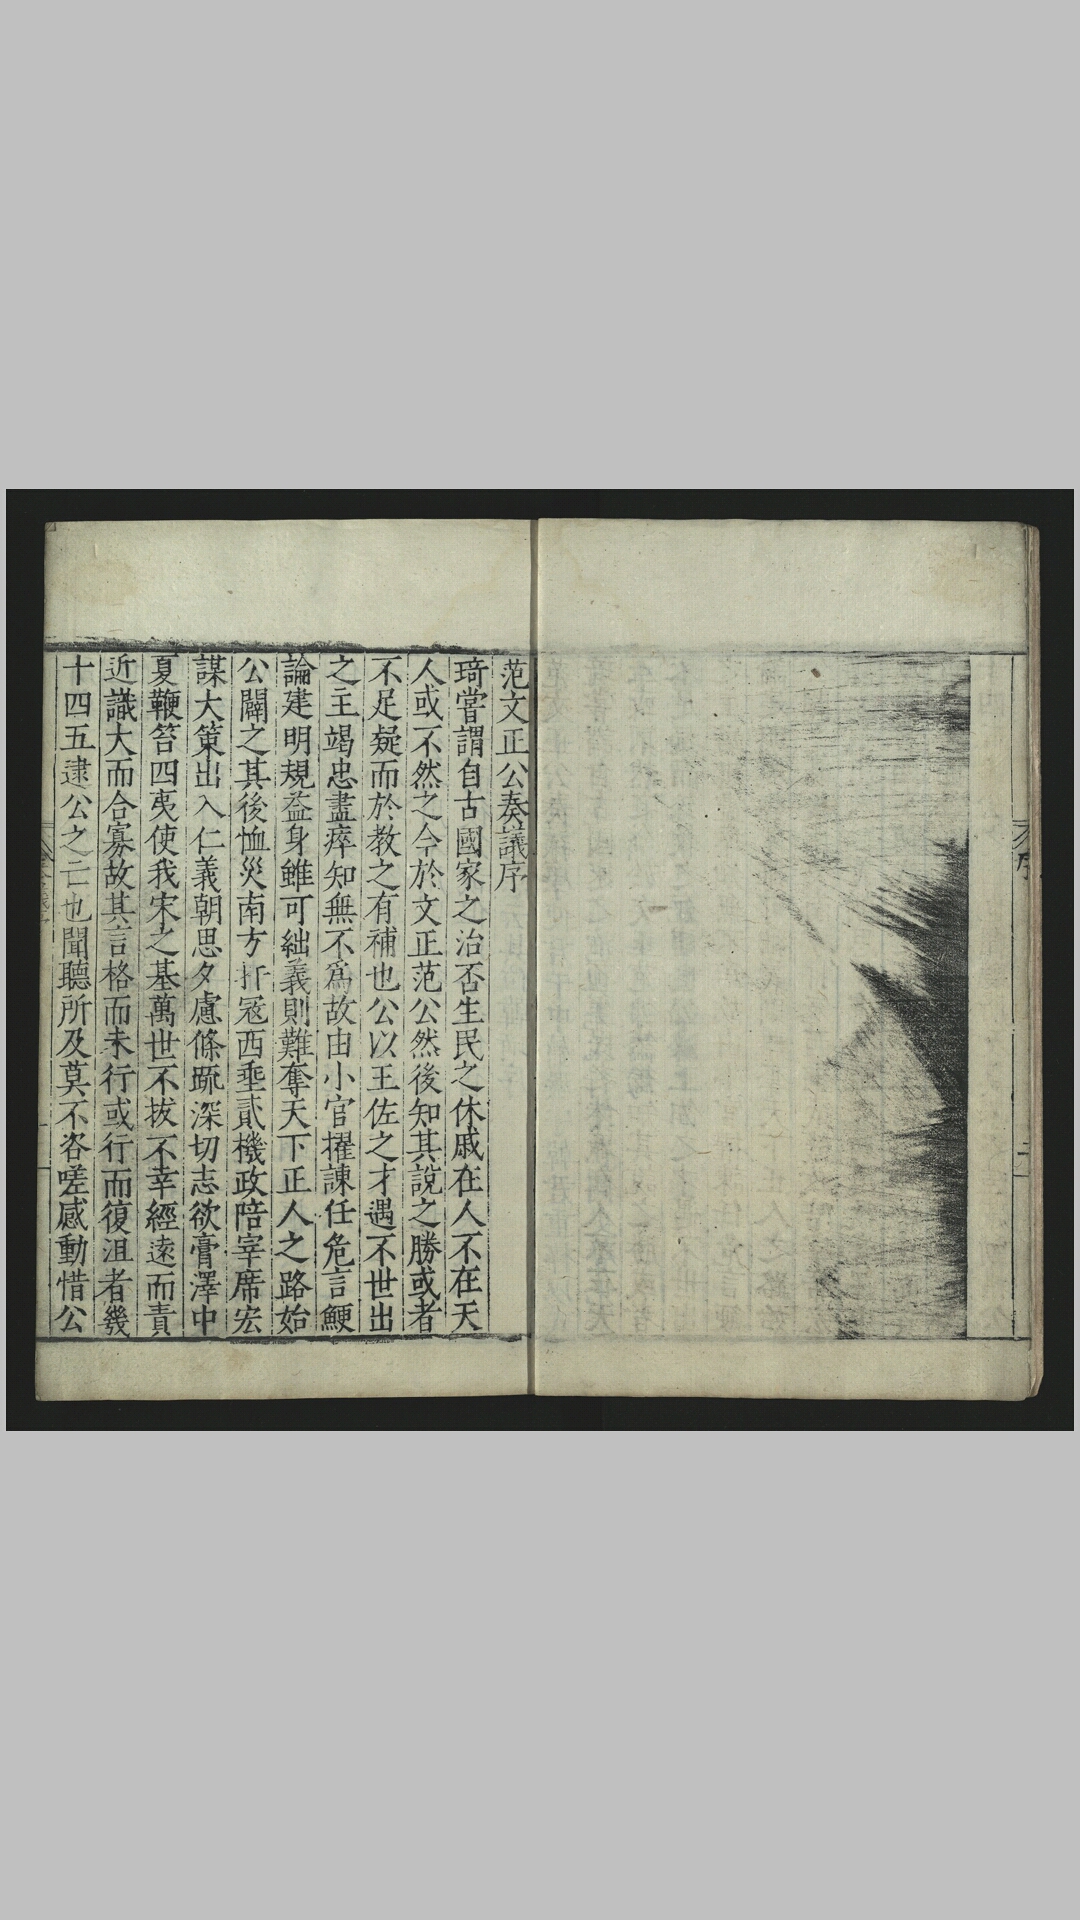 序
二
范文正公奏議序
琦嘗謂自古國家之治否生民之休戚在人不在天
人或不然之今於文正范公然後知其說之勝或者
不足疑而於教之有補也公以王佐之才遇不世出
之主竭忠盡瘁知無不爲故由小官擢諫任危言鯁
論建明規益身雖可絀義則難奪天下正人之路始
公闢之其後恤災南方扞寇西垂貳機政陪宰席宏
謀大策出入仁義朝思夕慮條疏深切志欲膏澤中
夏鞭笞四夷使我宋之基萬世不拔不幸經遠而責
近識大而合寡故其言格而未行或行而復沮者幾
十四五逮公之亡也聞聽所及莫不咨嗟感動惜公